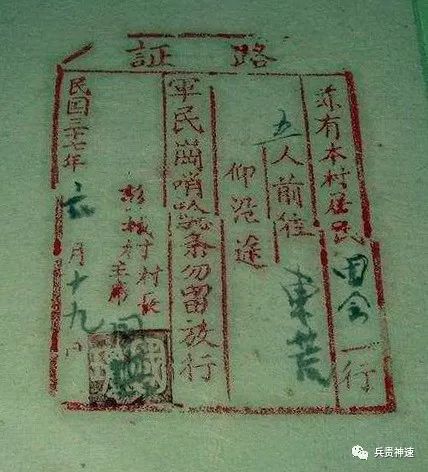 路証
茲有本村居民田一行
五人前往東
仰沿途
軍民崗哨驗条勿留放行
彭城村村長
村主席周
民国三七年六月十九日
兵贵神速